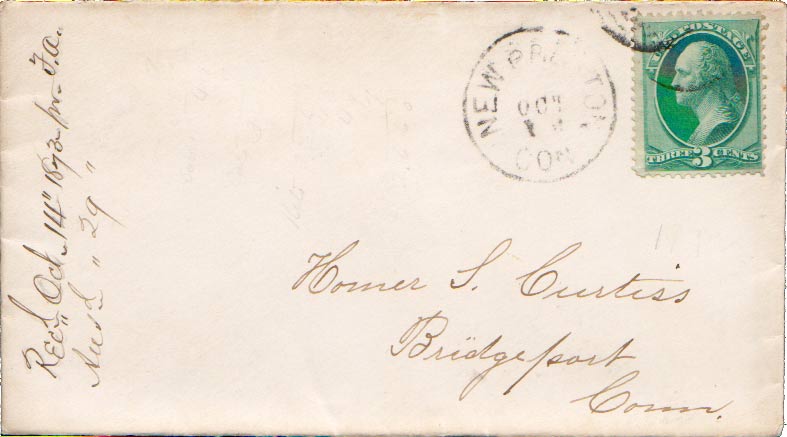 U.S. POSTAGE
THREE 3 CENTS
NEW PRESTON
OCT
14
CON
Homer S. Curtiss
Bridgeport
Conn.
Recd. Oct. 14" 1873 pr. F.A.
Ansd " 29 "